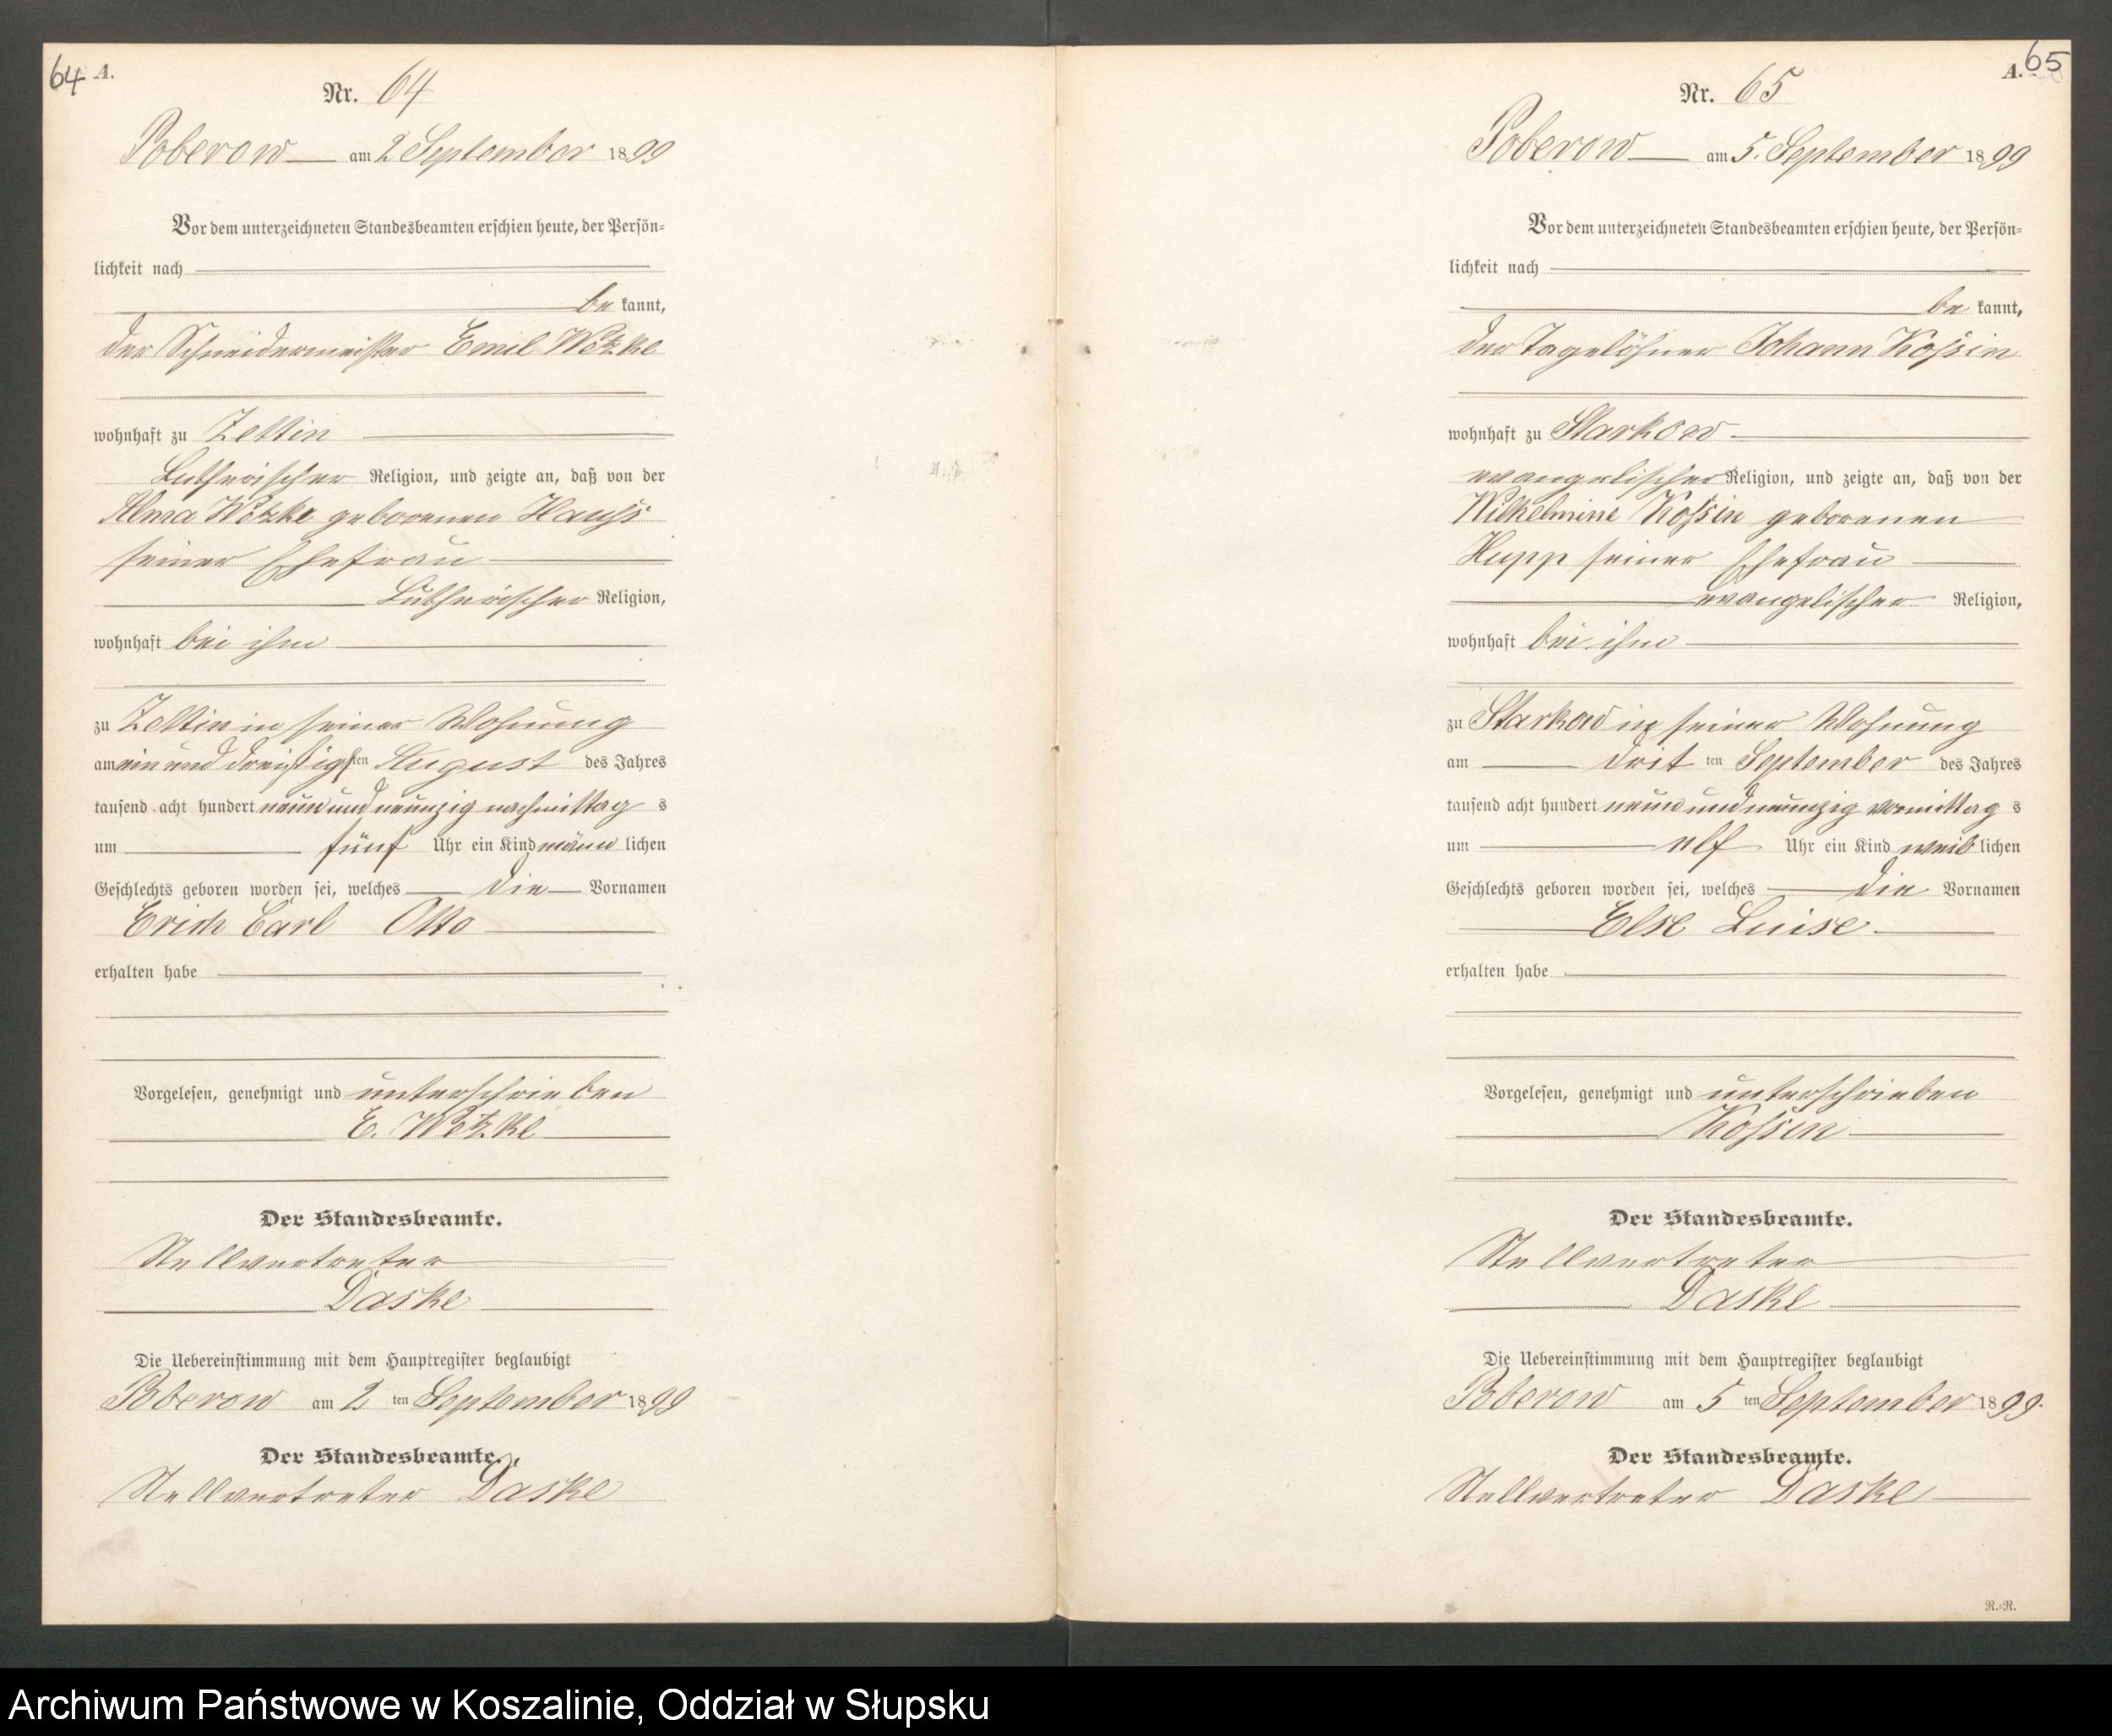 64 A.
Nr. 64
Poberow am 2 September 1899
Vor dem unterzeichneten Standesbeamten erschien heute, der Persön=
lichkeit nach
be kannt,
der Schneidermeister Emil Wetzke
wohnhaft zu Zettin
Lutherischer Religion, und zeigte an, daß von der
Alma Wetzke geborenen Hauss
seiner Ehefrau
Lutherischer Religion,
wohnhaft bei ihm
zu Zettin in seiner Wohnung
am ein und dreißigsten August des Jahres
tausend acht hundert neun und neunzig nachmittag s
um fünf Uhr ein Kind männ lichen
Geschlechts geboren worden sei, welches die Vornamen
Erich Carl Otto
erhalten habe
Vorgelesen, genehmigt und unterschrieben
E. Wetzke
Der Standesbeamte.
Stellvertreter
Daske
Die Uebereinstimmung mit dem Hauptregister beglaubigt
Poberow am 2 ten September 1899
Der Standesbeamte.
Stellvertreter Daske
A. 65
Nr. 65
Poberow am 5. September 1899
Vor dem unterzeichneten Standesbeamten erschien heute, der Persön=
lichkeit nach
be kannt,
der Tagelöhner Johann Kossin
wohnhaft zu Starkow
evangelischer Religion, und zeigte an, daß von der
Wilhelmine Kossin geborenen
Hupp seiner Ehefrau
evangelischer Religion,
wohnhaft bei ihm
zu Starkow in seiner Wohnung
am drit ten September des Jahres
tausend acht hundert neun und neunzig vormittag s
um elf Uhr ein Kind weib lichen
Geschlechts geboren worden sei, welches die Vornamen
Else Luise
erhalten habe
Vorgelesen, genehmigt und unterschrieben
Kossin
Der Standesbeamte.
Stellvertreter
Daske
Die Uebereinstimmung mit dem Hauptregister beglaubigt
Poberow am 5 ten September 1899.
Der Standesbeamte.
Stellvertreter Daske
R.=R.
Archiwum Państwowe w Koszalinie, Oddział w Słupsku